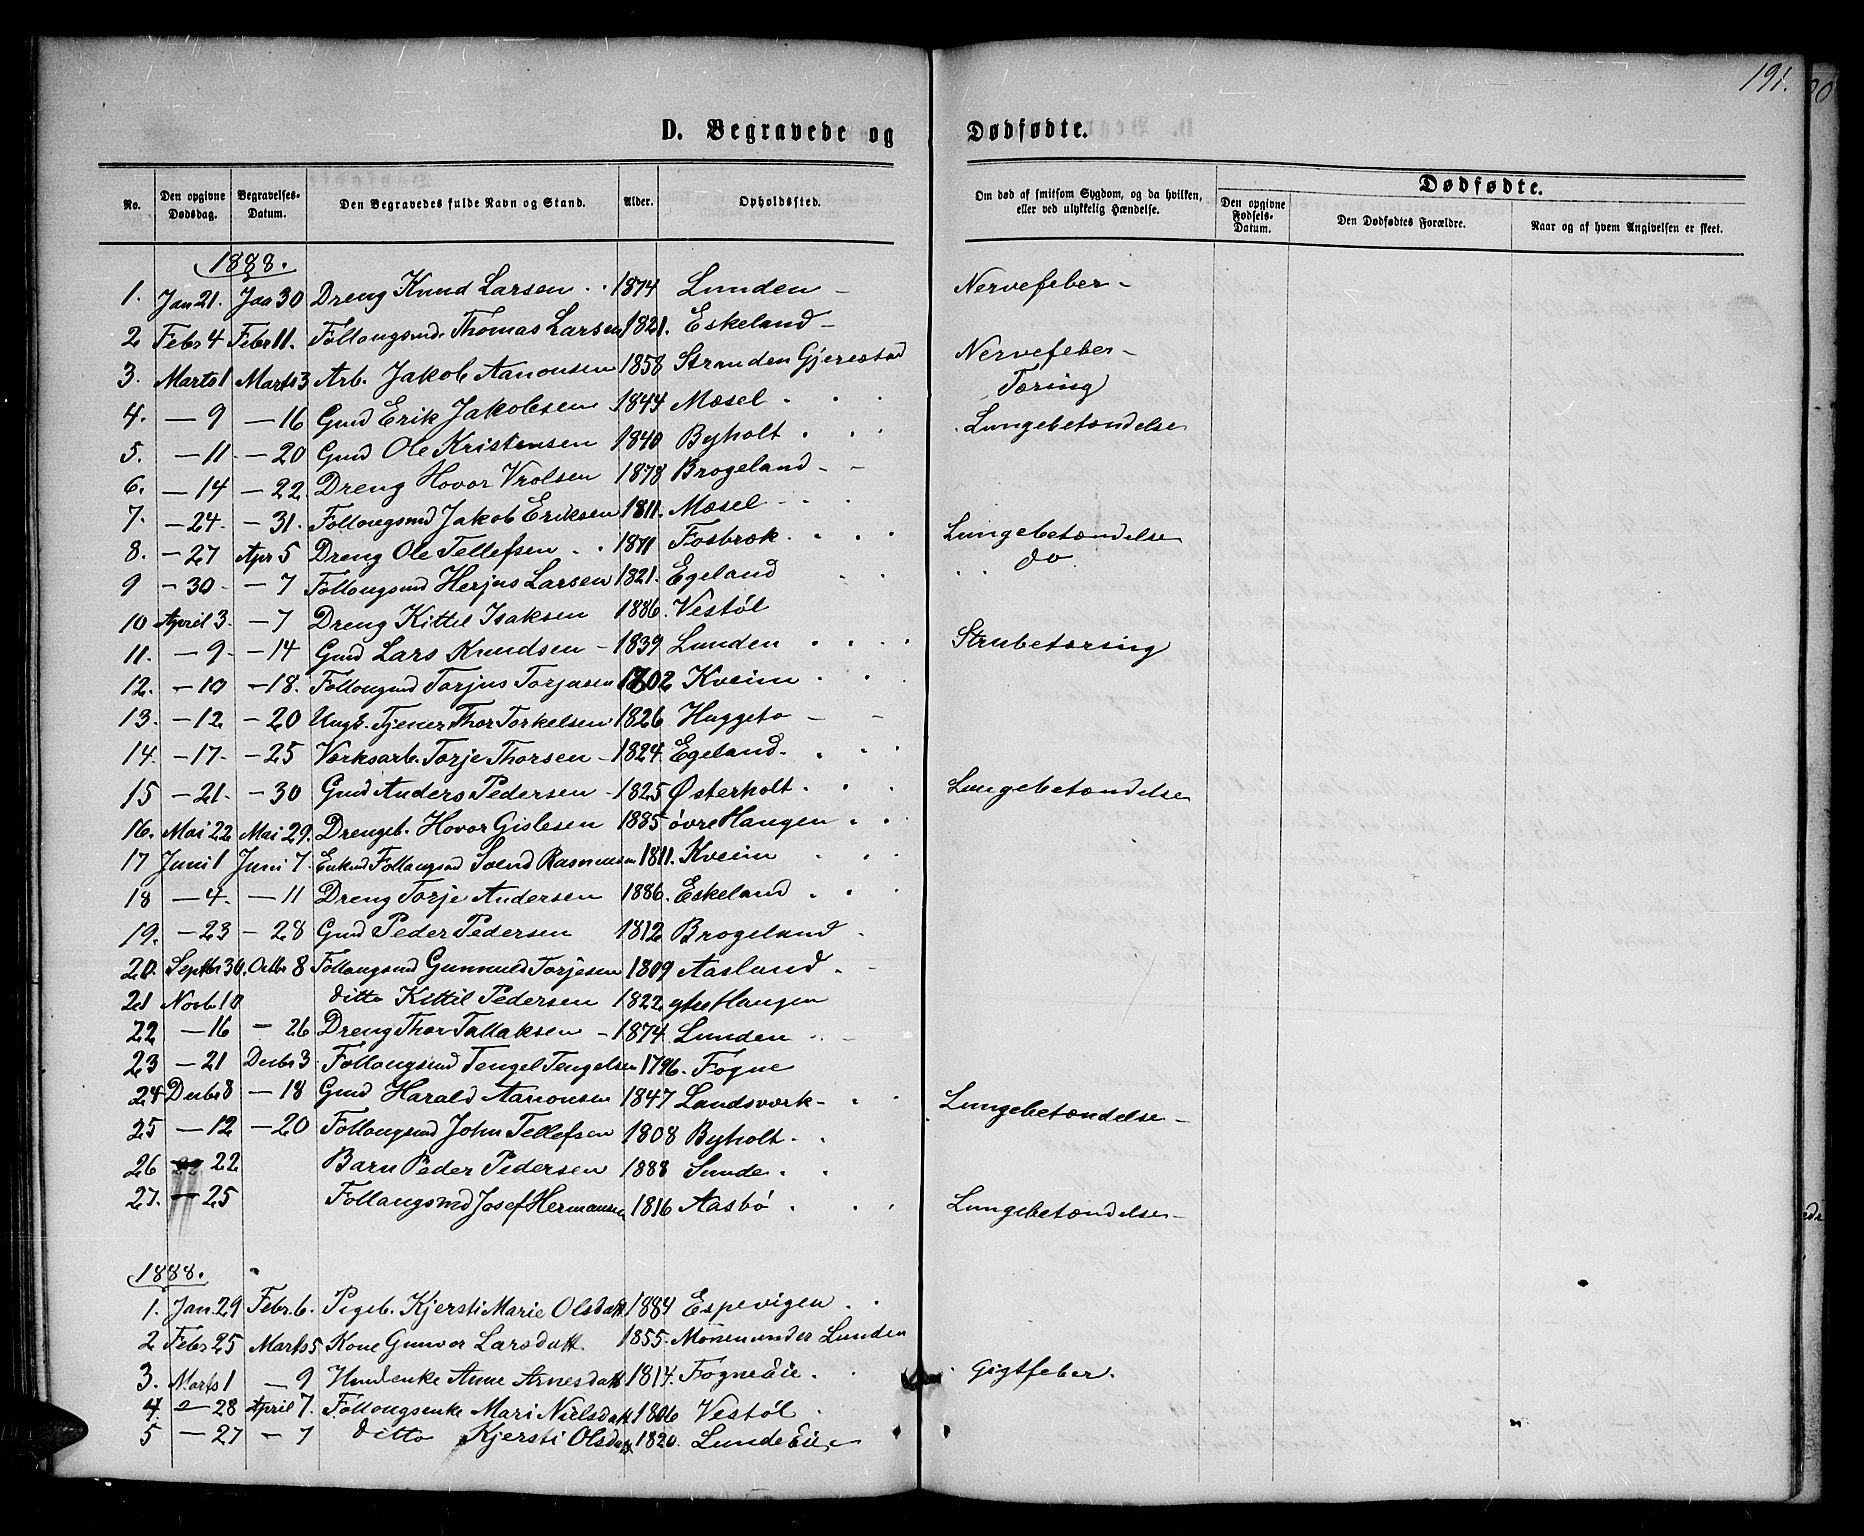 191.
D. Begravede og Dødfødte.
No. Den opgivne Dødsdag. Begravelses-Datum. Den Begravedes fulde Navn og Stand. Alder. Opholdssted. Om død af smitsom Sygdom, og da hvilken, eller ved ulykkelig Hændelse. Dødfødte. Den opgivne Fødsels-Datum. Den Dødfødtes Forældre. Naar og af hvem Angivelsen er skeet.
1888.
1. Jan 21. Jan 30 Dreng Knud Larsen 1874 Lunden - Nervefeber -
2 Febr 4 Febr 11. Follaugsmd. Thomas Larsen 1821. Eskeland -
3. Marts 1 Marts 3 Arb. Jakob Aanonsen 1858 Stranden Gjerestad Nervefeber -
4. - 9 - 16 Gmd Erik Jakobsen 1844 Mæsel Tæring
5. - 11 - 20 Gmd Ole Kristensen 1840 Byholt Lungebetændelse
6. - 14 - 22 Dreng Hovor Vrolsen 1878 Brogeland -
7. - 24 - 31. Follaugsmd Jakob Eriksen 1811. Mæsel
8. - 27 Apr 5 Dreng Ole Tellefsen 1871 Fosbræk Lungebetændelse
9 - 30 - 7 Follaugsmd Herjus Larsen 1821. Egeland do
10 April 3. - 7 Dreng Kittil Isaksen 1886. Vestøl
11. - 9 - 14 Gmd Lars Knudsen - 1839 Lunden Strubetæring
12. - 10 - 18. Follaugsmd Torjus Torjusen 1802 Kveim
13. - 12 - 20 Ungk. Tjener Thor Torkelsen 1826 Huggeto -
14. - 17 - 25 Værksarb. Torje Thorsen - 1824 Egeland.
15 - 21 - 30 Gmd Anders Pedersen - 1825 Østerholt Lungebetændelse
16. Mai 22 Mai 29. Drengeb. Hovor Gislesen 1885 øvre Haugen
17 Juni 1 Juni 7. Enkmd Follaugsmd Svend Rasmussen 1811. Kveim
18 - 4 - 11 Dreng Torje Andersen 1886. Eskeland
19. - 23 - 28 Gmd Peder Pedersen 1812 Brogeland
20. Septbr 30. Octbr 8 Follaugsmd Gunnuld Torjesen 1809 Aasland
21 Novb 10 ditto Kittil Pedersen 1822 ytre Haugen
22 - 16 - 26 Dreng Thor Tallaksen - 1874 Lunden
23 - 21 Decbr 3 Follaugsmd Tengel Tengelsen 1796. Fogne
24 Decbr 8 - 18 Gmd Harald Aanonsen 1847 Landsværk - Lungebetændelse -
25 - 12 - 20 Follaugsmd John Tellefsen 1808 Byholt
26 22 Barn Peder Pedersen 1888 Sunde
27. - 25 Follaugsmd Josef Hermansen 1816 Aasbø Lungebetændelse -
1888.
1. Jan. 29 Febr. 6. Pigeb. Kjersti Marie Olsdatt 1884 Espevigen
2 Febr 25 Marts 5 Kone Gunvor Larsdatt 1855. Monen under Lunden
3. Marts 1 - 9 Husmdenke Anne Arnesdatt 1814. Fogne Eie Gigtfeber.
4. - 28 April 7. Follaugsenke Mari Nielsdatt 1806 Vestøl
5 - 27 - 7 ditto Kjersti Olsdatt 1820. Lunde Eie